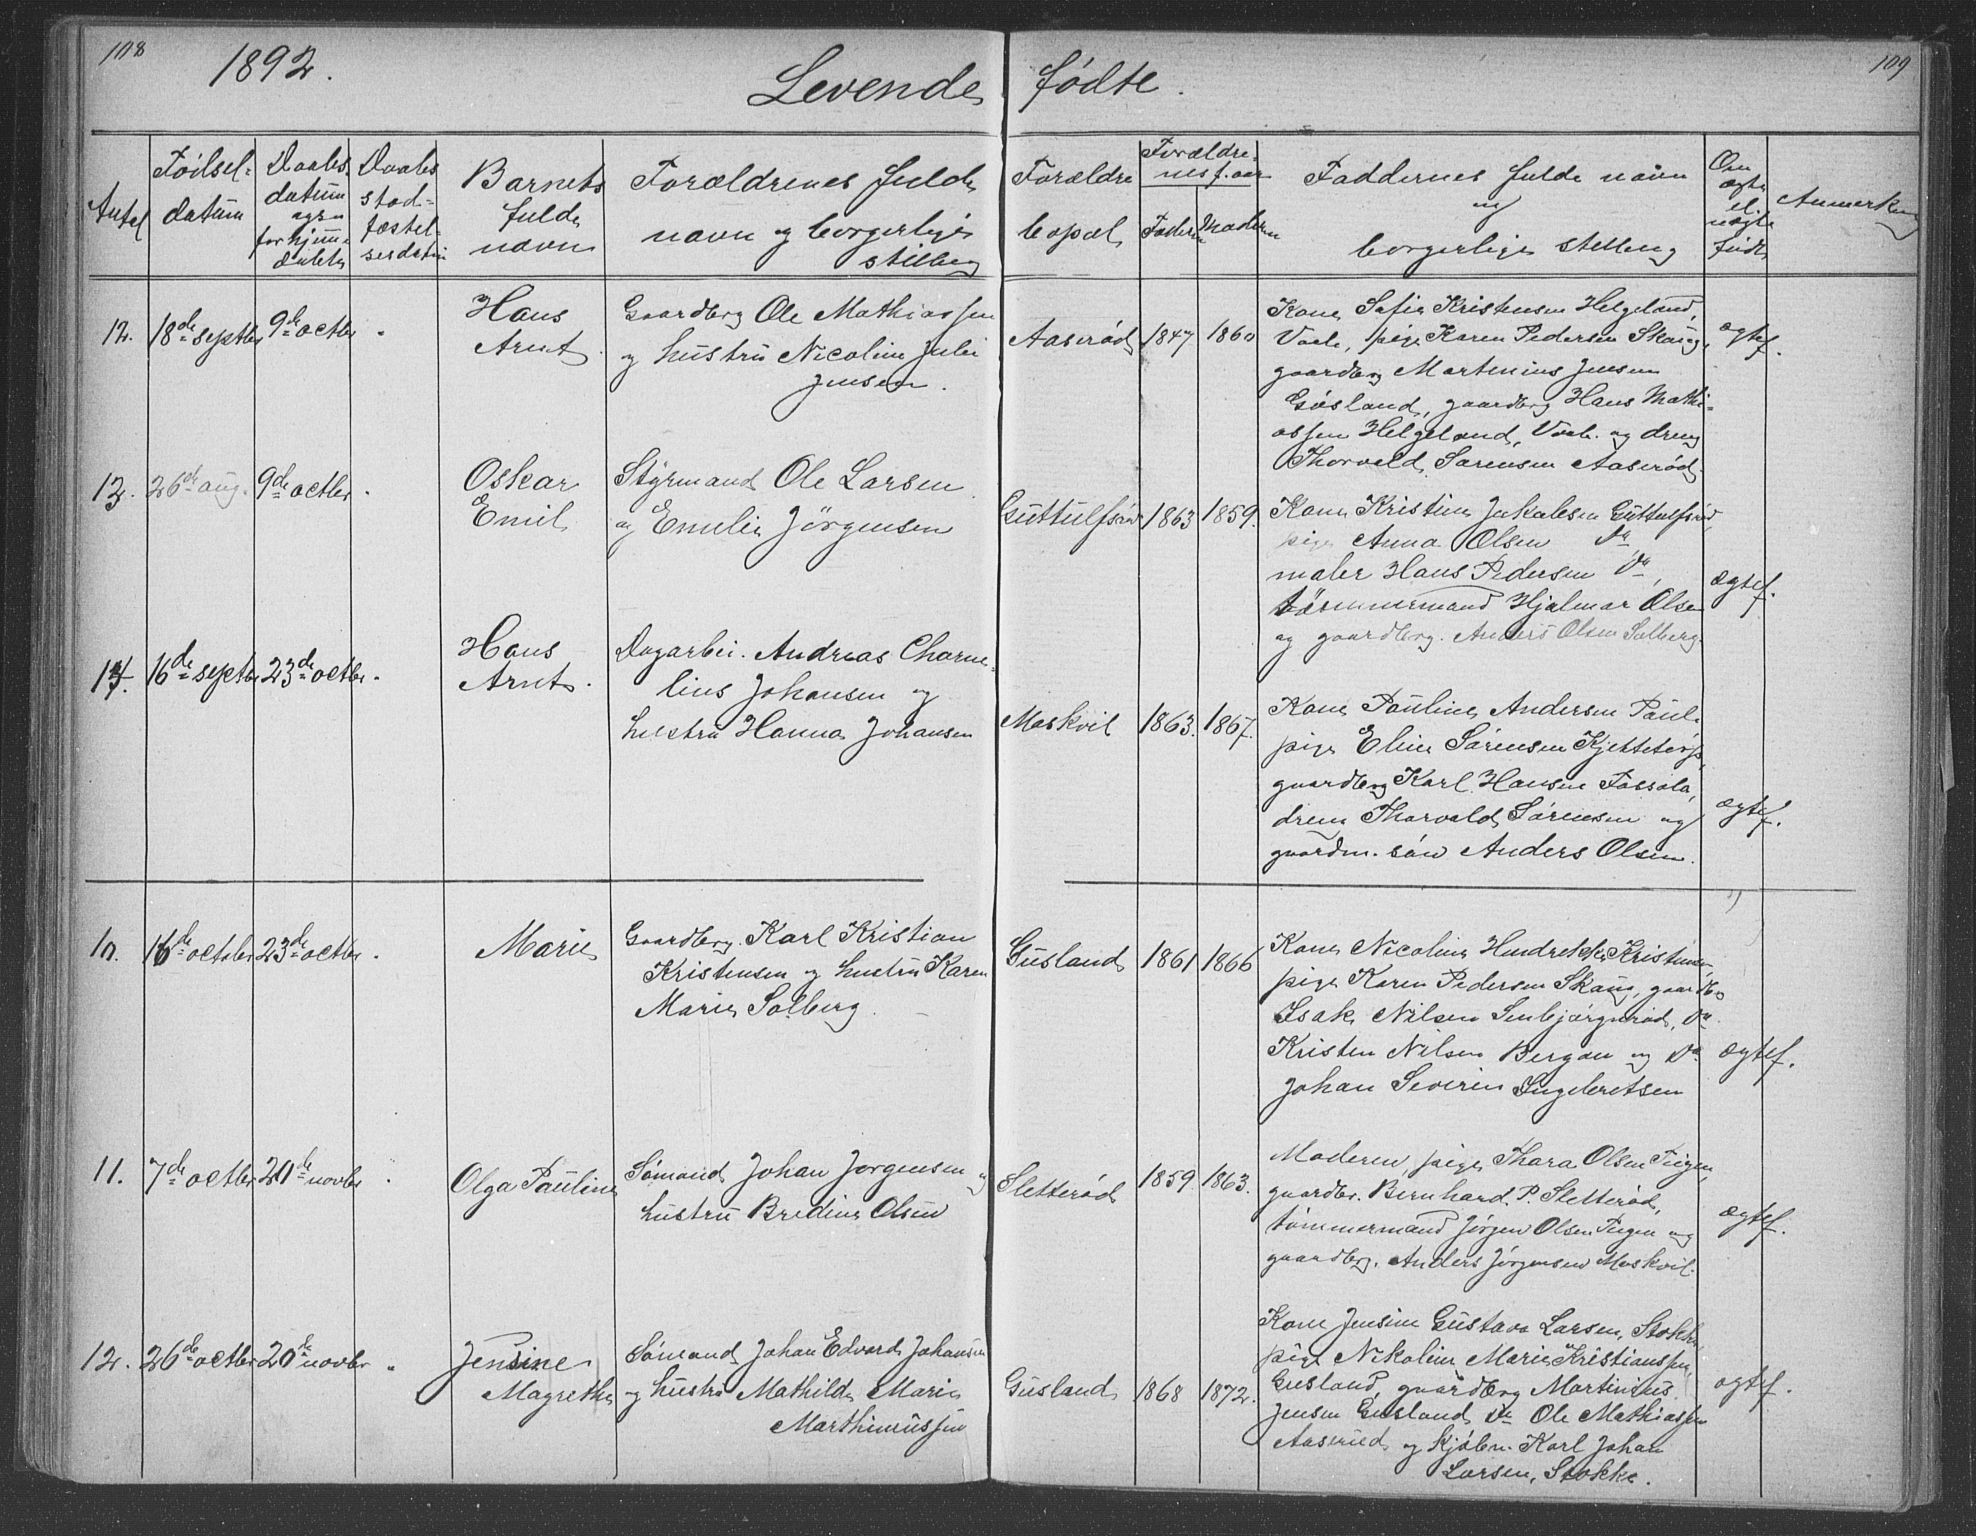 108
1892.
Levende fødte.
109
Antal
Födsel-
datum
Daabs
datum
for hjem-
Daabs
stad-
fæstel-
Barnets
fulde
navn
Forældrenes fulde
navn og borgerlige
stilling
Forældre
bopæl
Forældre-
nes f. aar
Faderen
Moderen
Faddernes fulde navn
og
borgerlige stelling
Om
ægte
el.
uægte
födt
Anmerkning
12. 18de septbr 9de octbr "
Hans
Arnt.
Gaardbrg Ole Mathiassen
og hustru Nicoline Julie
Jensen.
Aaserød 1847 1860
Kone Sofie Kristensen Helgeland,
Vaale, pige Karen Pedersen Skaug,
gaardbrg Martinius Jensen
Gösland, gaardbrg Hans Mathi-
assen Helgeland, Vaale. og dreng
Thorvald Sørensen Aaserød.
ægtef.
13. 26de aug. 9de octbr.
Oskar
Emil
Styrmand Ole Larsen
og Emelie Jørgensen
Guttulfsröd 1863 1859.
Kone Kristine Jakobsen Guttulfsröd,
pige Anna Olsen Do
maler Hans Pedersen Do,
tömmermand Hjalmar Olsen
og gaardbrg. Anders Olsen Solberg.
ægtef.
14. 16de septbr 23de octbr.
Hans
Arnt.
Dagarbei. Andreas Charne-
lius Johansen og
hustru Hanna Johansen
Moskvil 1863. 1867.
Kone Pauline Andersen Paul.
pige Eline Sørensen Kjettetörp,
gaardbrg Karl Hansen Fossola,
dreng Thorvald Sørensen og
gaardm. sön Anders Olsen.
ægtef.
10. 16de octbr 23de octbr.
Marie
Gaardbrg. Karl Kristian
Kristensen og hustru Karen
Marie Solberg.
Gusland 1861 1866
Kone Nicoline Hendrekke Kristensen
pige Karen Pedersen Skaug, gaardbr
Isak Nilsen Senbjörgnröd, Do.
Kristen Nilsen Bergan og Do.
Johan Severin Ingebretsen
ægtef.
11. 7de octbr 20de novbr
Olga Pauline
Sömand Johan Jørgensen og
hustru Bredine Olsen
Sletteröd 1859. 1863.
Moderen, pige Thara Olsen Tiegen,
gaardbr. Bernhard P. Sletteröd,
tömmermand Jörgen Olsen Tiegen og
gaardbrg. Anders Jörgensen Moskvil.
ægtef.
12. 26de octbr 20de novbr "
Jensine
Magrethe
Sömand Johan Edvard Johansen
og hustru Mathilde Marie
Marthiniussen
Gusland 1868 1872.
Kone Jensine Gustava Larsen, Stokke,
pige Nikoline Marie Kristianssen,
Gusland, gaardbrg Martinius
Jensen Gusland Do Ole Mathiassen
Aaseröd og kjøbm. Karl Johan
Larsen, Stokke.
ægtef.